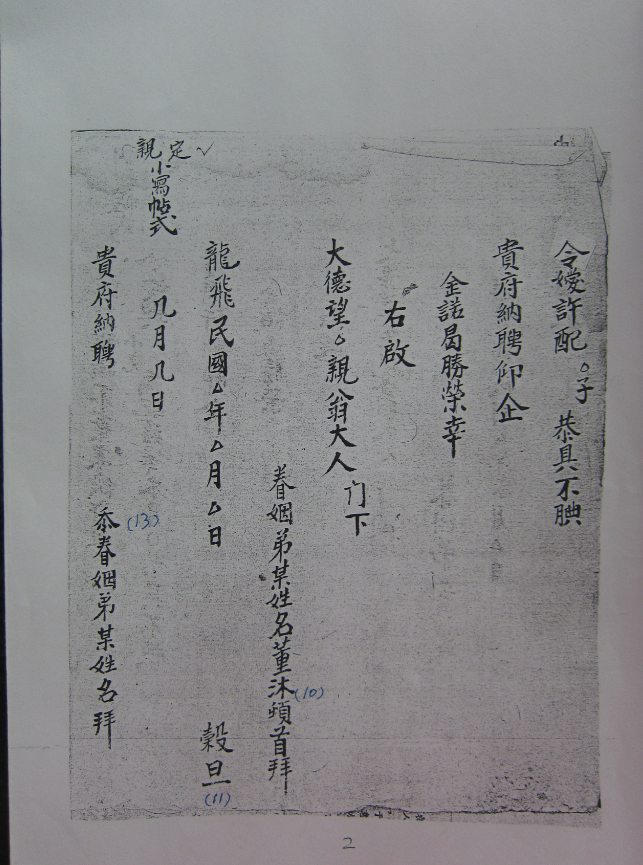 令嬡許配○子 恭具不腆
貴府納聘仰企
金諾曷勝榮幸
右啟
大德望○親翁大人门下
眷姻弟某姓名董沐頓首拜
(10)
龍飛民國△年△月△日 穀旦
(11)
定親小寫帖式
几月几日
(13)
貴府納聘 忝眷姻弟某姓名拜
2